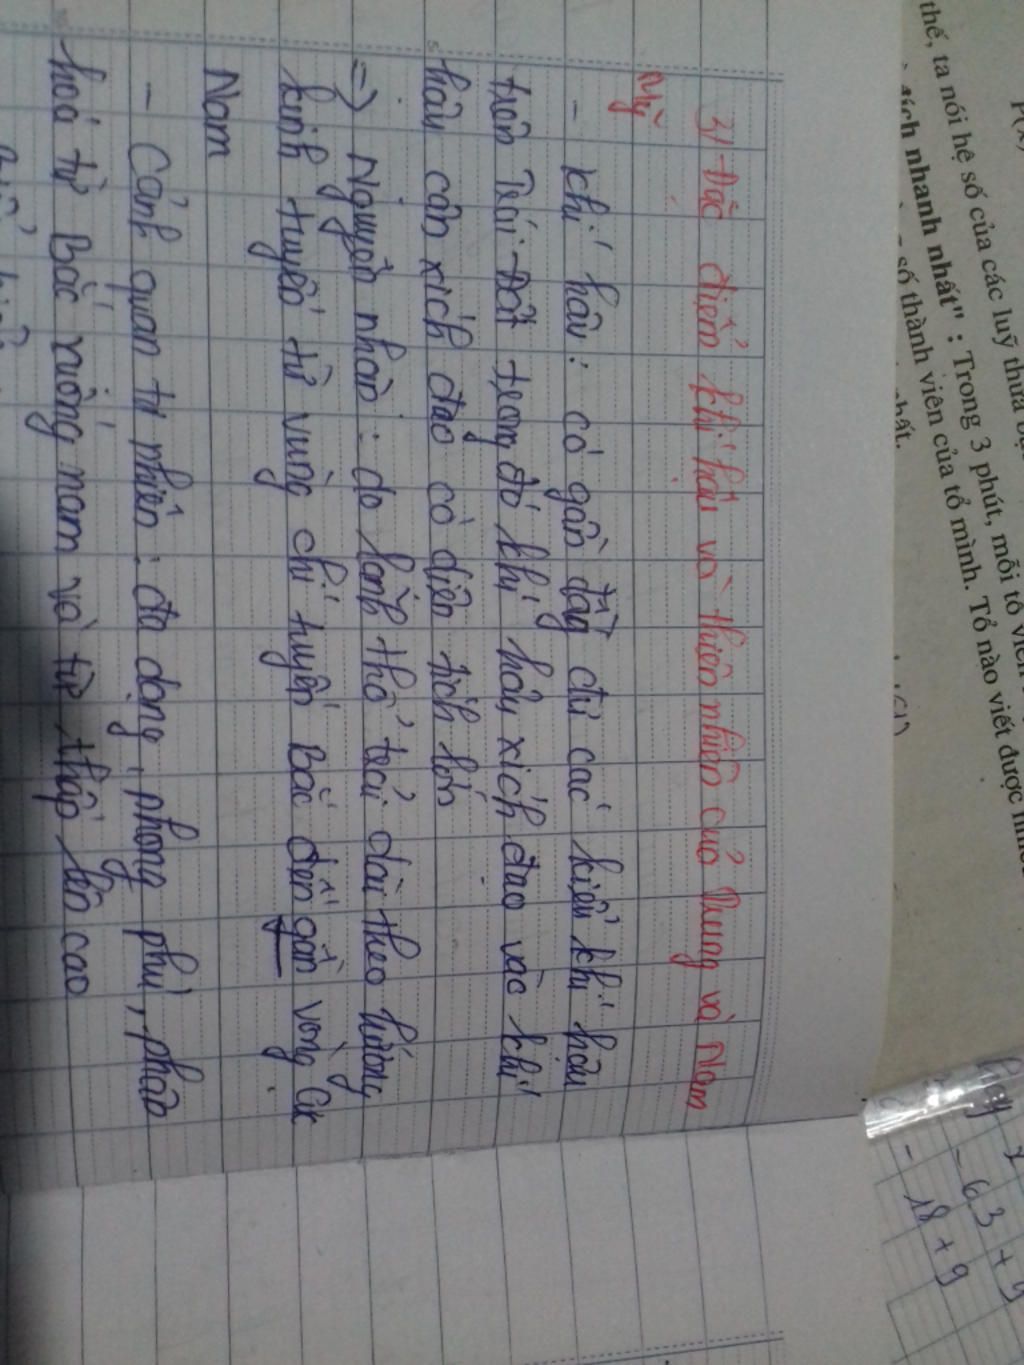 3/ Đặc điểm khí hậu và thiên nhiên của Trung và Nam
Mỹ
- Khí hậu: có gần đầy đủ các kiểu khí hậu
trên Trái Đất trong đó khí hậu xích đạo và khí
hậu cận xích đạo có diện tích lớn
=> Nguyên nhân: do lãnh thổ trải dài theo hướng
kinh tuyến từ vùng chí tuyến Bắc đến gần vòng Cực
Nam
- Cảnh quan tự nhiên: đa dạng, phong phú, phân
hoá từ Bắc xuống nam và từ thấp lên cao
P(x)
thế, ta nói hệ số của các luỹ thừa
đích nhanh nhất" : Trong 3 phút, mỗi tổ viên
số thành viên của tổ mình. Tổ nào viết được nhiều
nhất.
- 6.3 + 9
- 18 + 9